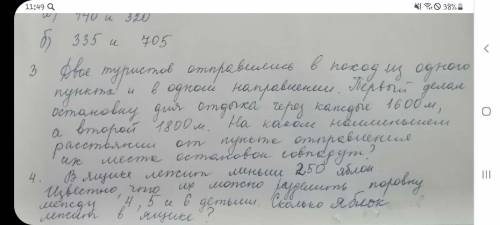 11:49
38%
а) 140 и 320
б) 335 и 705
3 Двое туристов отправились в поход из одного
пункта и в одном направлении. Первый делал
остановку для отдыха через каждые 1600м,
а второй 1800м. На каком наименьшем
расстоянии от пункта отправления
их места остановок совпадут?
4. В ящике лежит меньше 250 яблок
Известно, что их можно разделить поровну
между 4, 5 и 6 детьми. Сколько яблок
лежит в ящике?